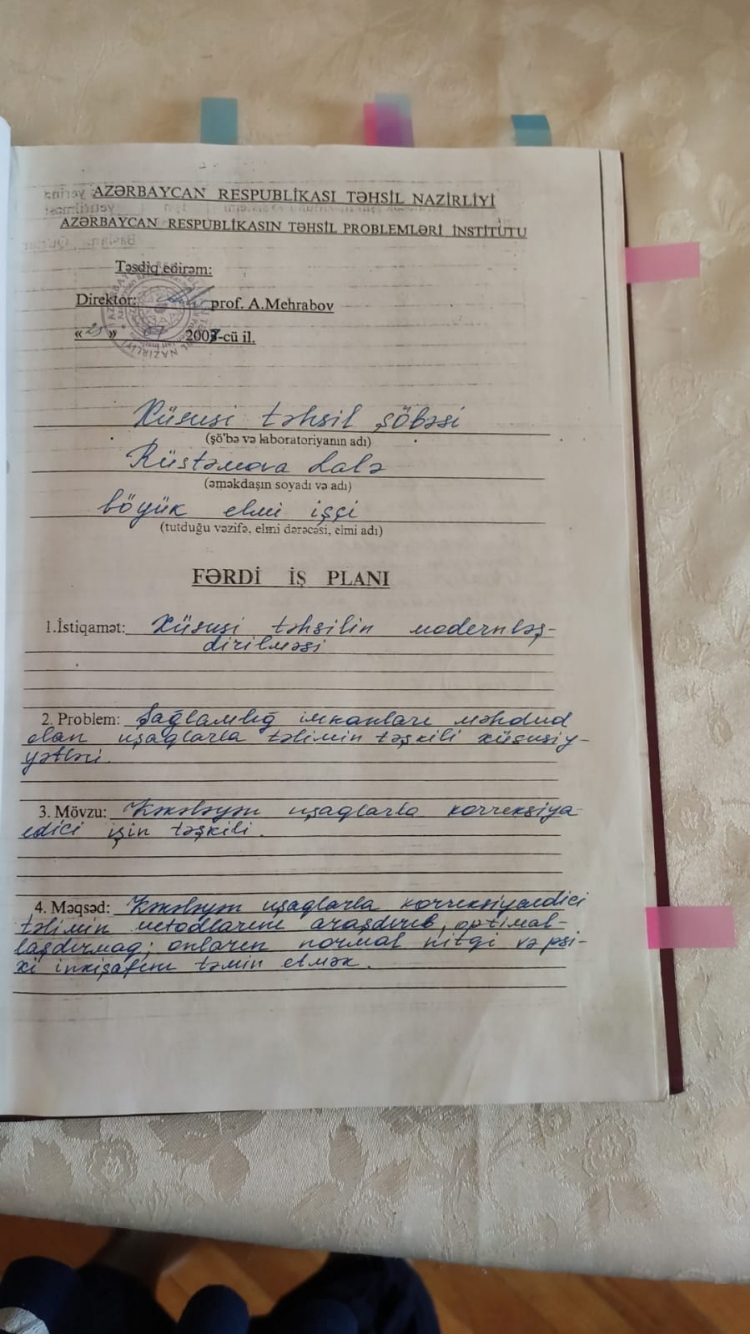 AZƏRBAYCAN RESPUBLİKASI TƏHSİL NAZİRLİYİ
AZƏRBAYCAN RESPUBLİKASIN TƏHSİL PROBLEMLƏRİ İNSTİTUTU
Təsdiq edirəm:
Direktor: prof. A.Mehrabov
« 25 » 2007-cü il.
Xüsusi təhsil şöbəsi
(şö'bə və laboratoriyanın adı)
Rüstəmova Lalə
(əməkdaşın soyadı və adı)
böyük elmi işçi
(tutduğu vəzifə, elmi dərəcəsi, elmi adı)
FƏRDİ İŞ PLANI
1.İstiqamət: Xüsusi təhsilin modernləş-
dirilməsi
2. Problem: Sağlamlığ imkanları məhdud
olan uşaglarla təlimin təşkili xüsusiy-
yətləri.
3. Mövzu: Kəkələyən uşaglarla korreksiya
edici işin təşkili.
4. Məqsəd: Kəkələyən uşaglarla korreksiyaedici
təlimin metodlarını araşdırıb, optimal-
laşdırmag; onların normal nitgi və psi-
xi inkişafını təmin etmək.